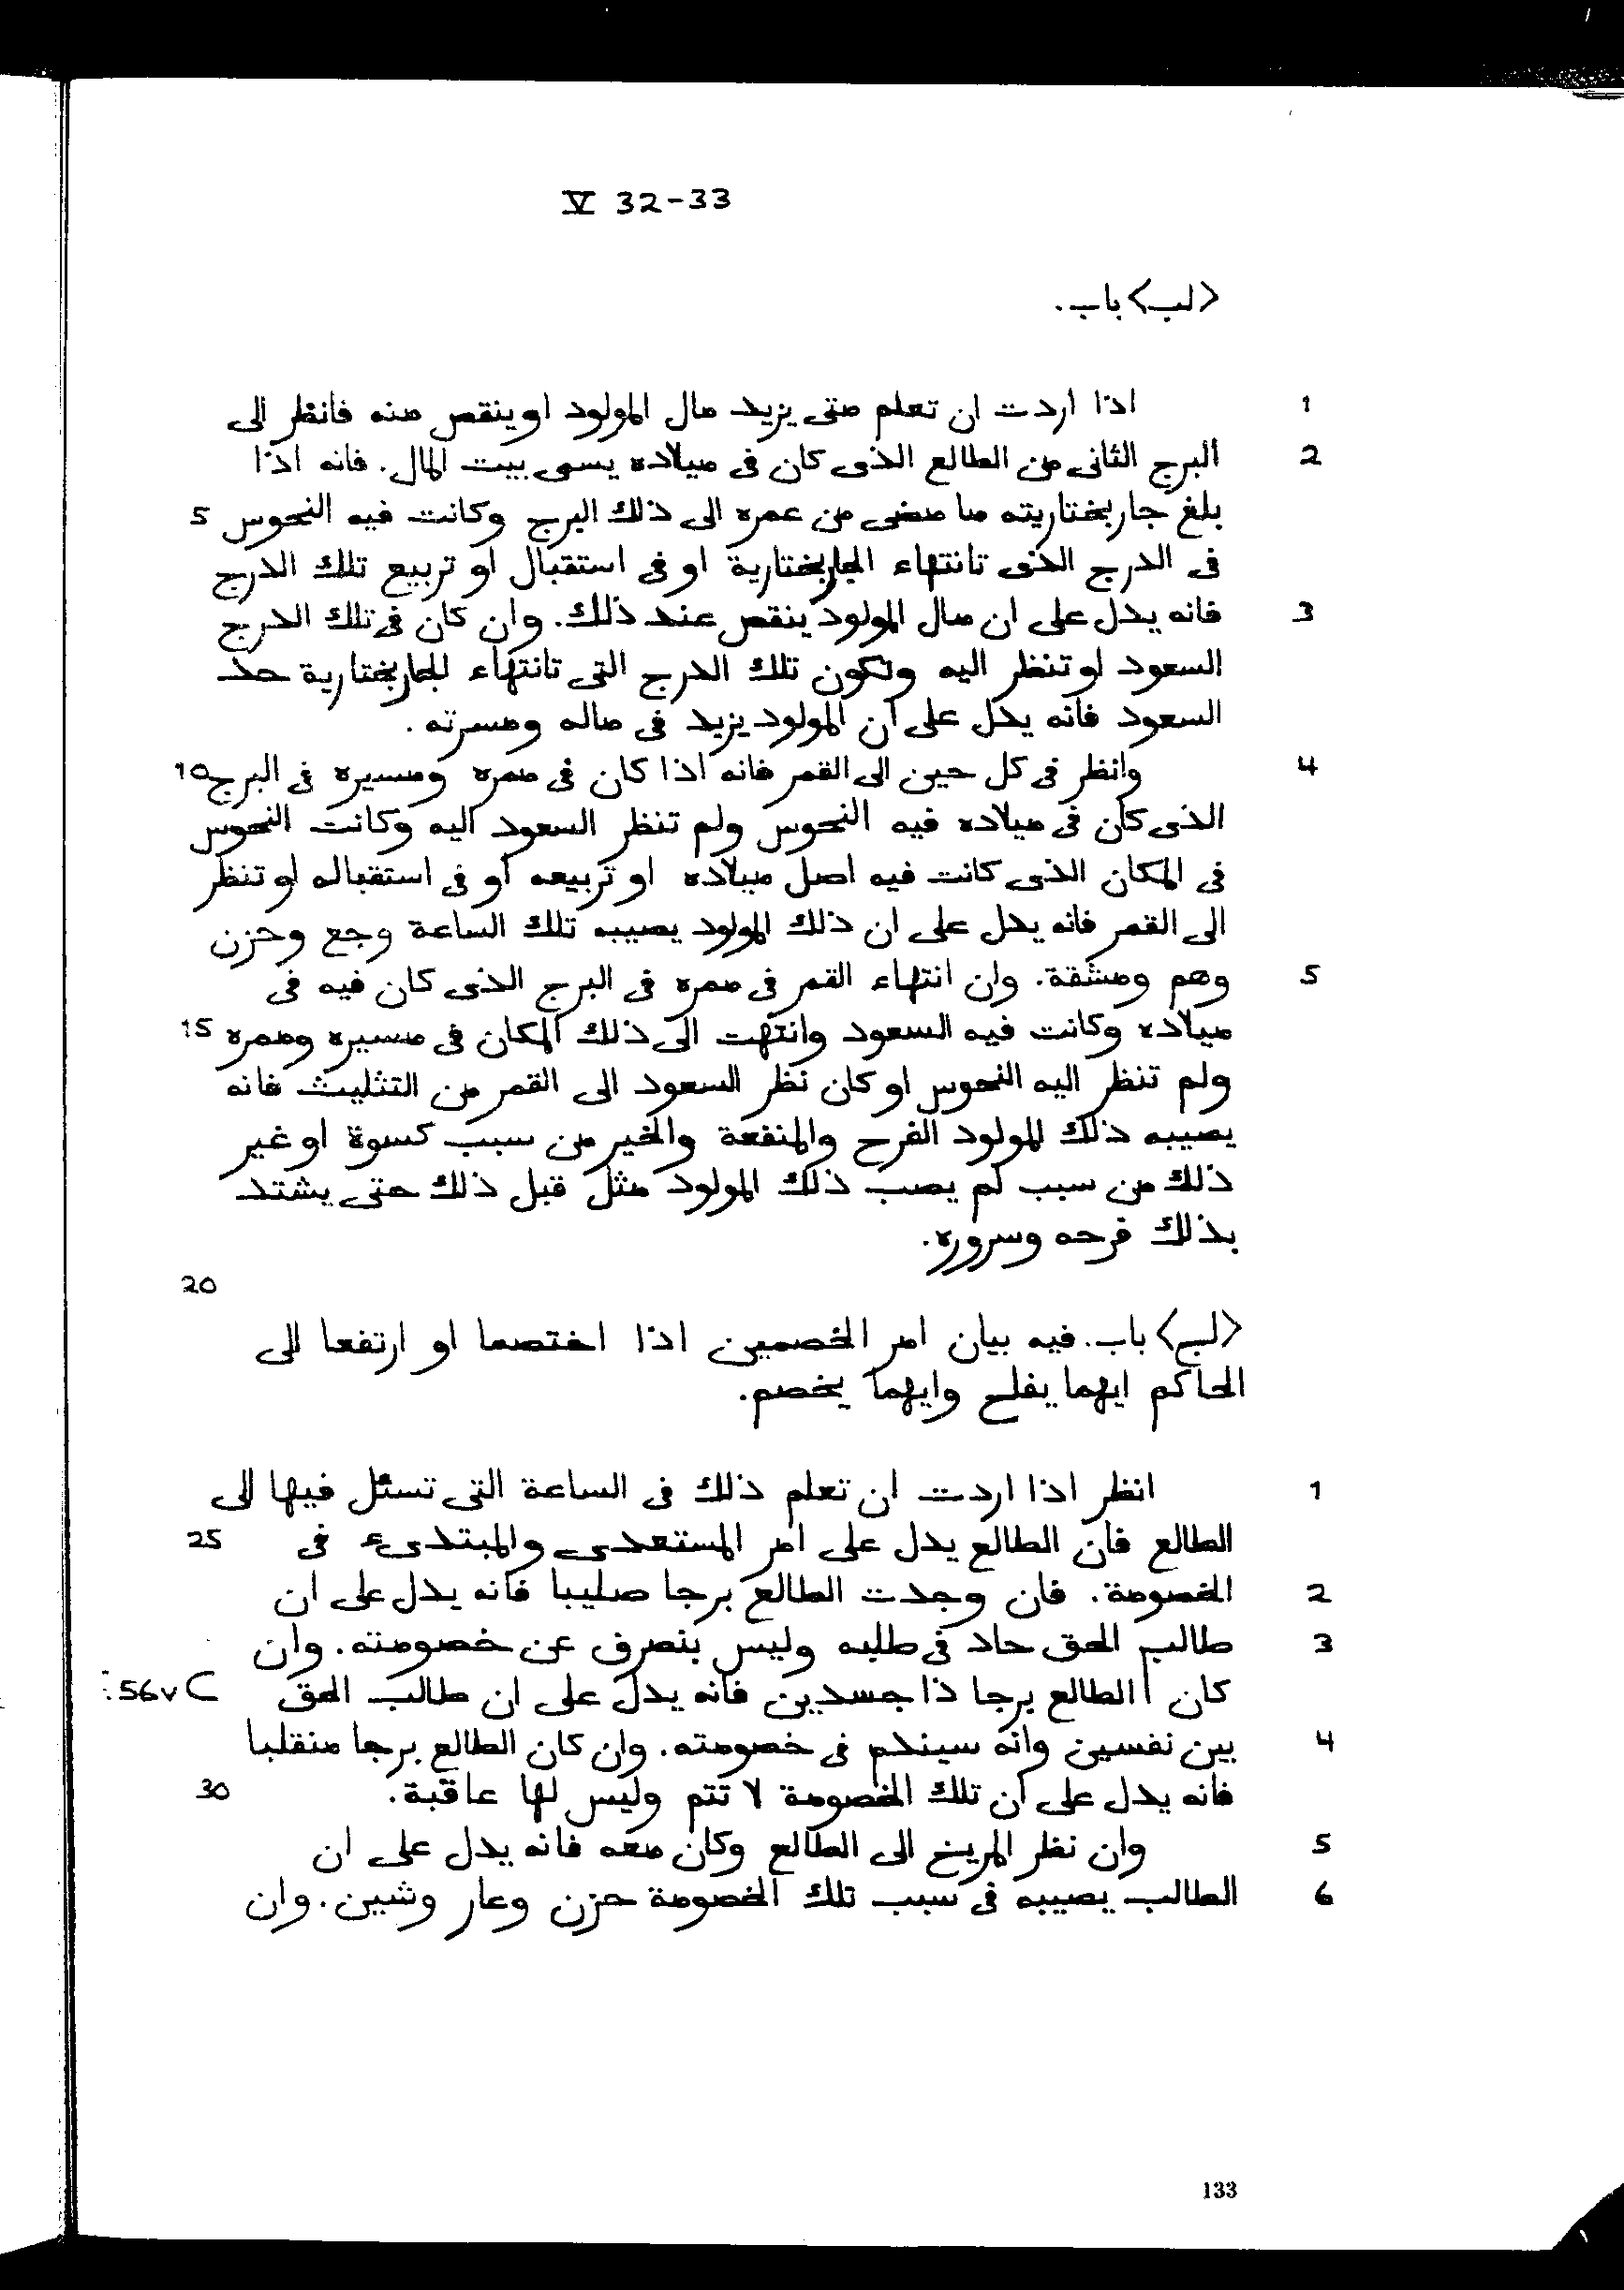 V 32-33
<لب> باب.
1 اذا اردت ان تعلم متى يزيد مال المولود او ينقص منه فانظر الى
2 البرج الثانى من الطالع الذى كان فى ميلاده يسمى بيت المال. فانه اذا
بلغ جاربختاريته ما مضى من عمره الى ذلك البرج وكانت فيه النحوس 5
فى الدرج الذى تانتهاء الجاربختارية او فى استقبال او تربيع تلك الدرج
3 فانه يدل على ان مال المولود ينقص عند ذلك. وان كان فى تلك الدرج
السعود او تنظر اليه وتكون تلك الدرج التى تانتهاء للجاربختارية حد
السعود فانه يدل على ان المولود يزيد فى ماله ومسرته.
4 وانظر فى كل حين الى القمر فانه اذا كان فى ممره ومسيره فى البرج 10
الذى كان فى ميلاده فيه النحوس ولم تنظر السعود اليه وكانت النحوس
فى المكان الذى كانت فيه اصل ميلاده او تربيعه او فى استقباله او تنظر
الى القمر فانه يدل على ان ذلك المولود يصيبه تلك الساعة وجع وحزن
5 وهم ومشقة. وان انتهاء القمر فى ممره فى البرج الذى كان فيه فى
ميلاده وكانت فيه السعود وانتهت الى ذلك المكان فى مسيره وممره 15
ولم تنظر اليه النحوس او كان نظر السعود الى القمر من التثليث فانه
يصيبه ذلك المولود الفرح والمنفعة والخير من سبب كسوة او غير
ذلك من سبب لم يصب ذلك المولود مثل قبل ذلك حتى يشتد
بذلك فرحه وسروره.
20
<لج> باب. فيه بيان امر الخصمين اذا اختصما او ارتفعا الى
الحاكم ايهما يفلح وايهما يخصم.
1 انظر اذا اردت ان تعلم ذلك فى الساعة التى تسئل فيها الى
الطالع فان الطالع يدل على امر المستعدى والمبتدىء فى 25
2 الخصومة. فان وجدت الطالع برجا صليبا فانه يدل على ان
3 طالب الحق حاد فى طلبه وليس ينصرف عن خصومته. وان
كان | الطالع برجا ذا جسدين فانه يدل على ان طالب الحق 56v C
4 بين نفسين وانه سيندم فى خصومته. وان كان الطالع برجا منقلبا
فانه يدل على ان تلك الخصومة لا تتم وليس لها عاقبة. 30
5 وان نظر المريخ الى الطالع وكان معه فانه يدل على ان
6 الطالب يصيبه فى سبب تلك الخصومة حزن وعار وشين. وان
133